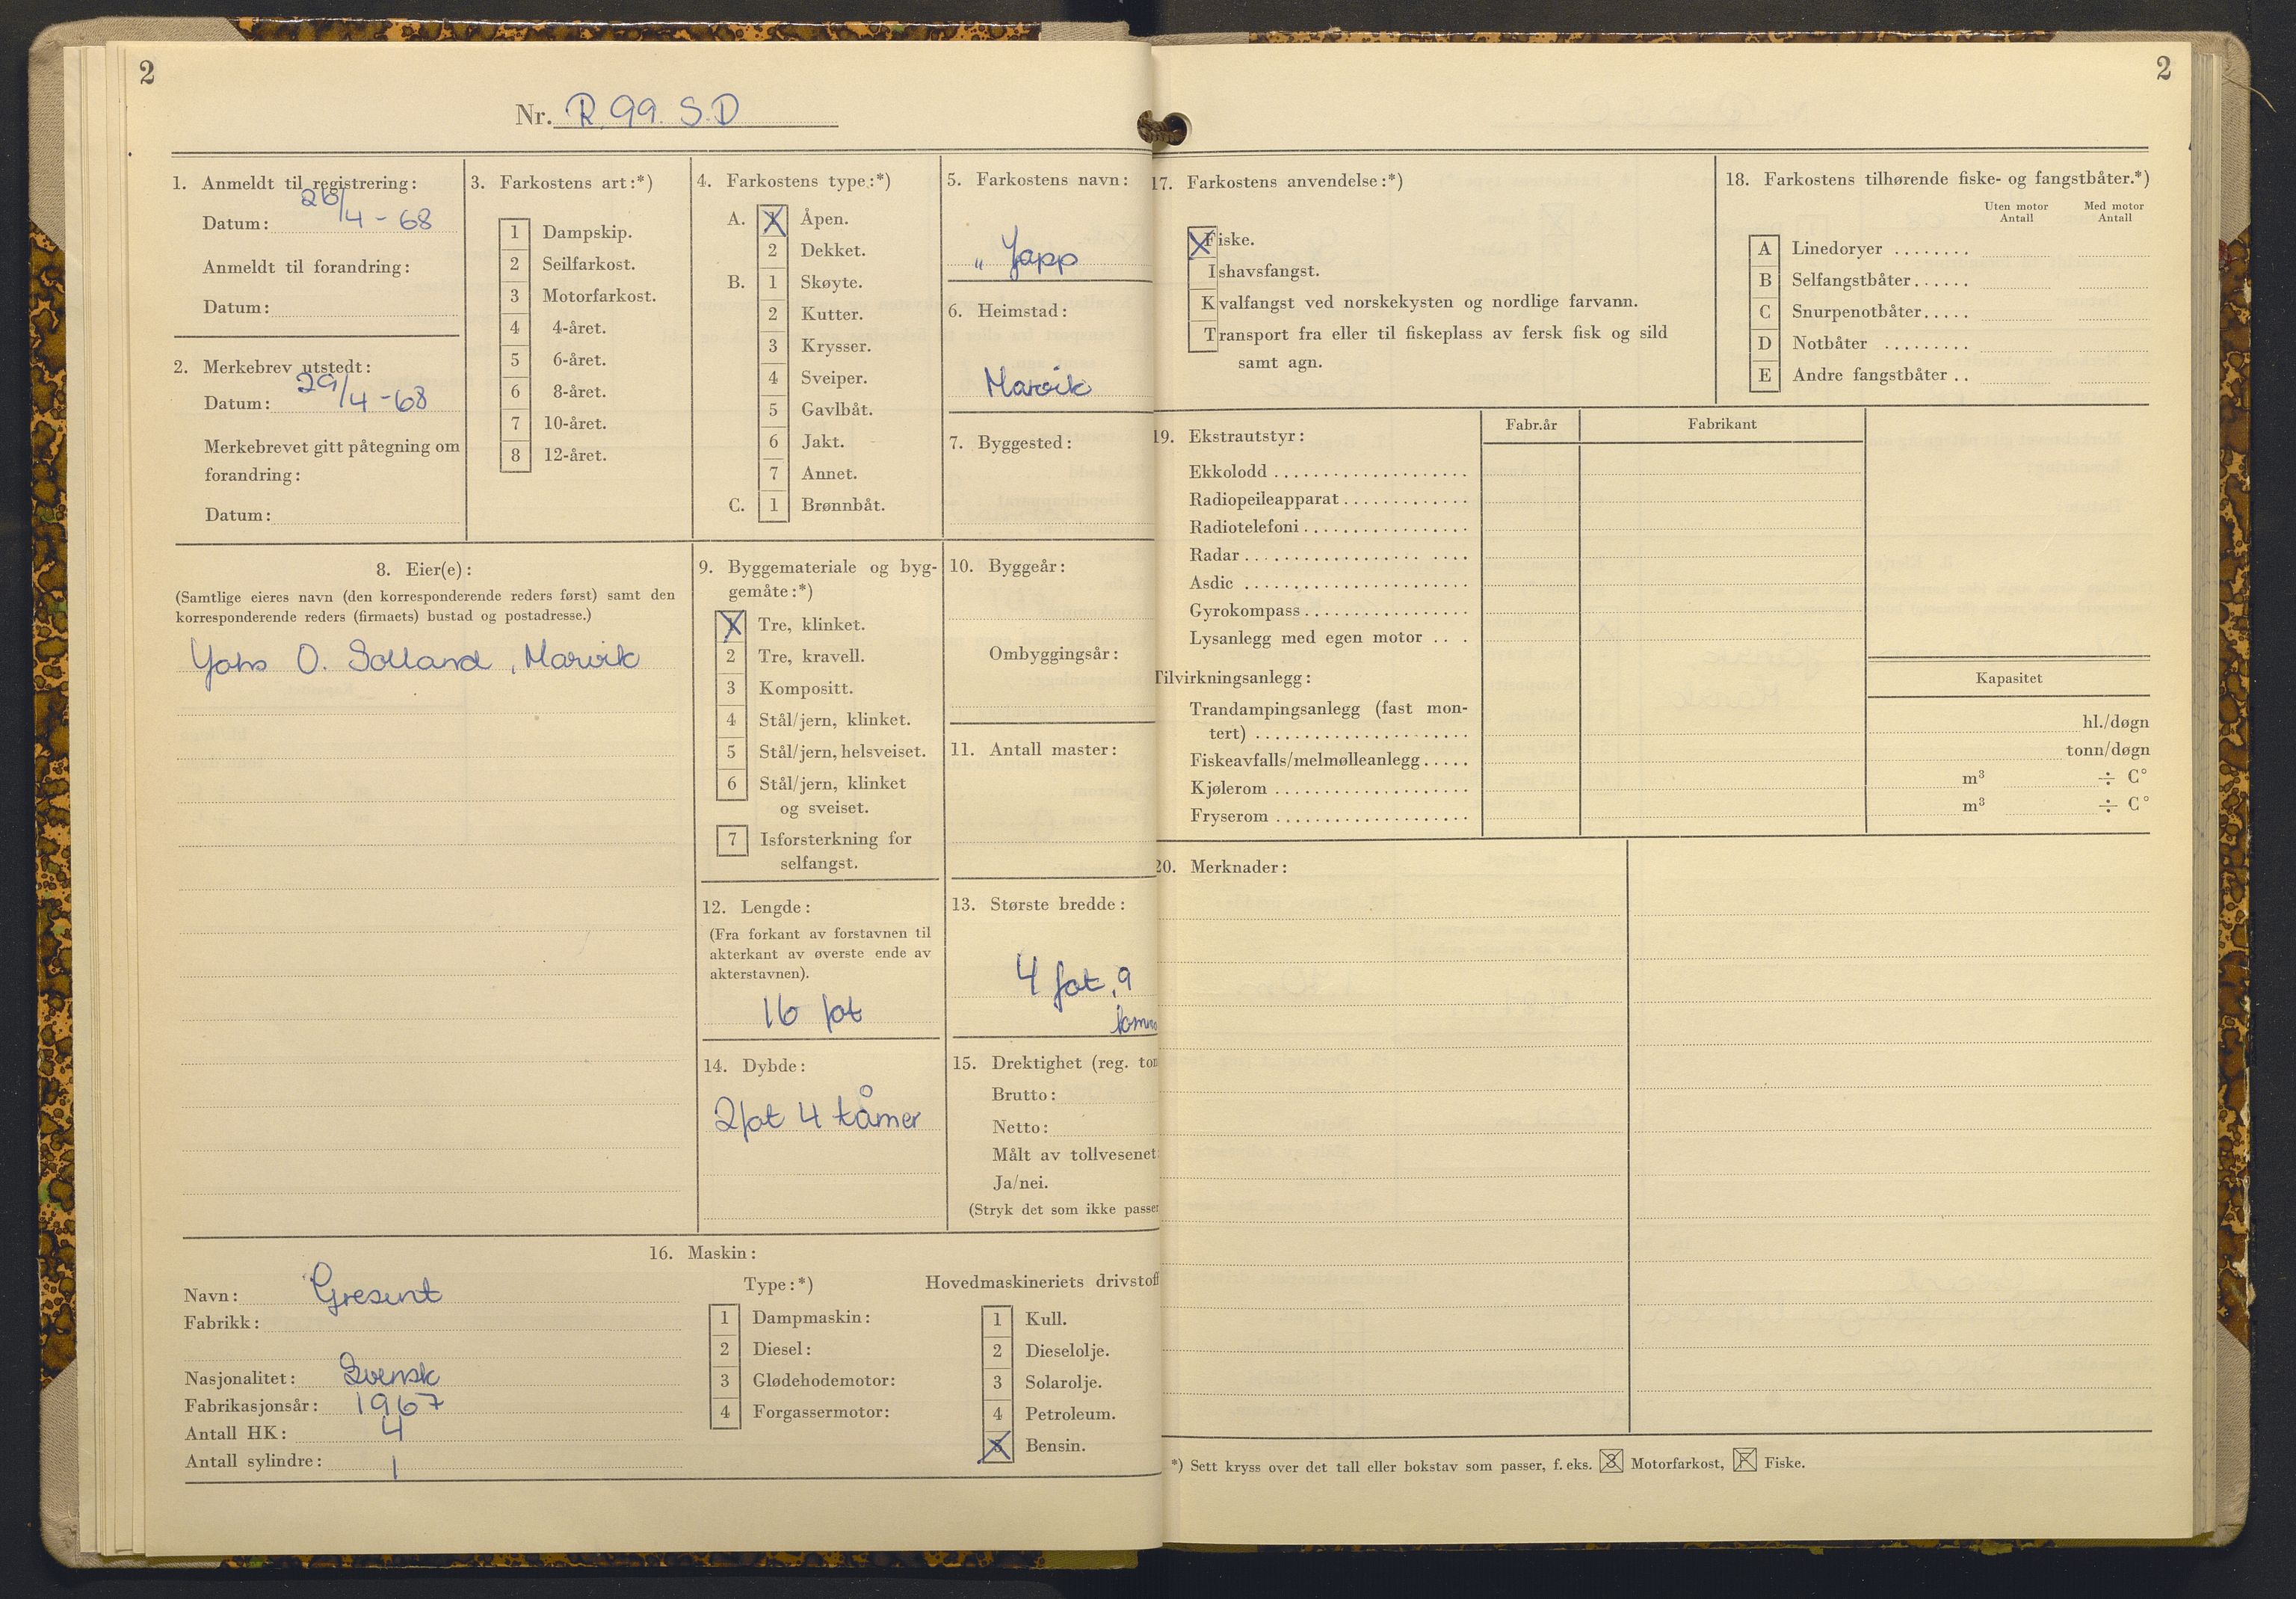 2
Nr. R. 99. S.D
1. Anmeldt til registrering:
Datum: 26/4 - 68
Anmeldt til forandring:
Datum:
2. Merkebrev utstedt:
Datum: 29/4 - 68
Merkebrevet gitt påtegning om
forandring:
Datum:
3. Farkostens art:*)
1 Dampskip.
2 Seilfarkost.
3 Motorfarkost.
4 4-året.
5 6-året.
6 8-året.
7 10-året.
8 12-året.
4. Farkostens type:*)
A. 1 Åpen.
2 Dekket.
B. 1 Skøyte.
2 Kutter.
3 Krysser.
4 Sveiper.
5 Gavlbåt.
6 Jakt.
7 Annet.
C. 1 Brønnbåt.
5. Farkostens navn:
„ Japp
6. Heimstad:
Marvik
7. Byggested:
8. Eier(e):
(Samtlige eieres navn (den korresponderende reders først) samt den
korresponderende reders (firmaets) bustad og postadresse.)
O. Solland, Marvik
9. Byggemateriale og byg-
gemåte:*)
1 Tre, klinket.
2 Tre, kravell.
3 Kompositt.
4 Stål/jern, klinket.
5 Stål/jern, helsveiset.
6 Stål/jern, klinket
og sveiset.
7 Isforsterkning for
selfangst.
10. Byggeår:
Ombyggingsår:
11. Antall master:
12. Lengde:
(Fra forkant av forstavnen til
akterkant av øverste ende av
akterstavnen).
16 fot
13. Største bredde:
4 fot, 9
14. Dybde:
2 fot 4 tåmer
15. Drektighet (reg. ton
Brutto:
Netto:
Målt av tollvesenet:
Ja/nei.
(Stryk det som ikke passer
16. Maskin:
Navn: Gresent
Fabrikk:
Nasjonalitet: Svensk
Fabrikasjonsår: 1967
Antall HK: 4
Antall sylindre: 1
Type:*)
1 Dampmaskin:
2 Diesel:
3 Glødehodemotor:
4 Forgassermotor:
Hovedmaskineriets drivstoff
1 Kull.
2 Dieselolje.
3 Solarolje.
4 Petroleum.
5 Bensin.
2
17. Farkostens anvendelse:*)
Fiske.
Ishavsfangst.
Kvalfangst ved norskekysten og nordlige farvann.
Transport fra eller til fiskeplass av fersk fisk og sild
samt agn.
18. Farkostens tilhørende fiske- og fangstbåter.*)
Uten motor Med motor
Antall Antall
A Linedoryer ........
B Selfangstbåter......
C Snurpenotbåter.....
D Notbåter .........
E Andre fangstbåter ..
19. Ekstrautstyr:
Fabr.år Fabrikant
Ekkolodd ....................
Radiopeileapparat.............
Radiotelefoni.................
Radar.......................
Asdic .......................
Gyrokompass.................
Lysanlegg med egen motor ...
Tilvirkningsanlegg:
Kapasitet
Trandampingsanlegg (fast mon-
tert) ...................... hl./døgn
Fiskeavfalls/melmølleanlegg..... tonn/døgn
Kjølerom .................... m³ ÷ C°
Fryserom .................... m³ ÷ C°
20. Merknader:
*) Sett kryss over det tall eller bokstav som passer, f. eks. 3 Motorfarkost, F Fiske.